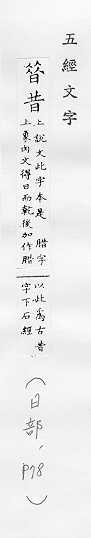 五經文字
昔昔
上說文此字本是腊字
上象肉文得日而乾後加作腊
以此為古昔
字下石經
(日部，P78)